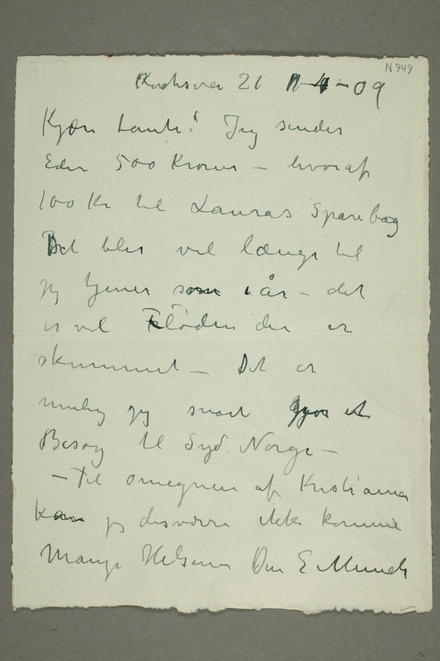 N 949
Kochsvei 21 11-4-09
Kjære tante! Jeg sender
Eder 500 Kroner – hvoraf
100 Kr til Lauras Sparebøg
Det blir vel længe til
jeg tjener som iår – det
er vel Fløden der er
skummet – Det er
mulig jeg snart gjør et
Besøg til Syd. Norge –
– Til omegnen af Kristiania
kan jeg desværre ikke komme
Mange Hilsener Din E Munch